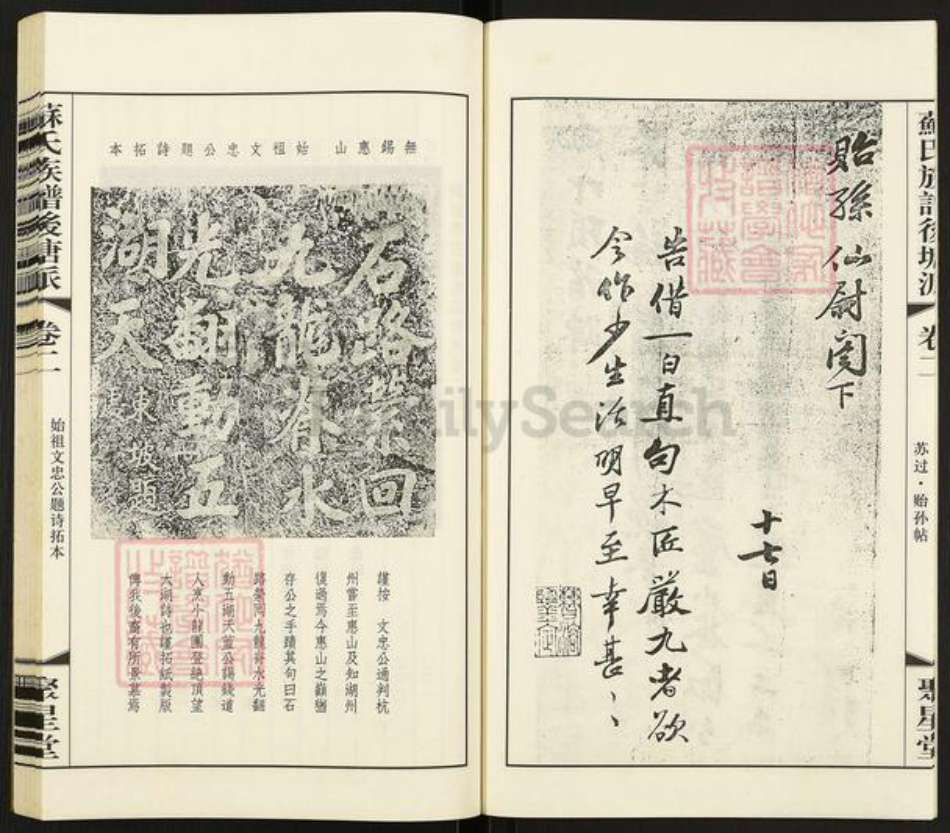 蘇氏族譜後塘派
卷二
苏过·贻孙帖
聚星堂
貽孫仙尉閤下
十七日
告借一日直句木匠嚴九者欲
令作少生活明早至幸甚、、
猶他家
譜學會
特藏
FamilySearch
無錫惠山 始祖文忠公題詩拓本
石路縈回
九龍脊水
光翻動五
湖天
東坡題
謹按 文忠公通判杭
州嘗至惠山及知湖州
復過焉今惠山之巔猶
存公之手蹟其句曰石
路縈回九龍脊水光翻
動五湖天蓋公謁錢道
人烹小龍團登絕頂望
太湖詩也謹拓紙製版
俾我後裔有所景慕焉
猶他家
譜學會
特藏
蘇氏族譜後塘派
卷二
始祖文忠公题诗拓本
聚星堂